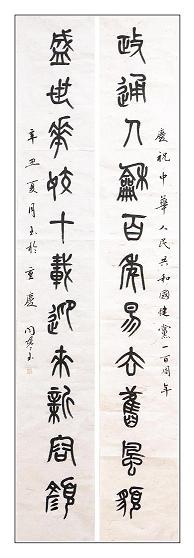 慶祝中華人民共和國健黨一百周年
政通人龢百年易去舊風貌
盛世華姣十載迎來新容顏
辛丑夏月玉於重慶